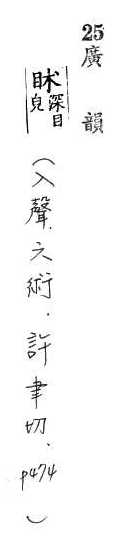 25 廣韻
䀢深目皃
（入聲.六術．許聿切．p474）